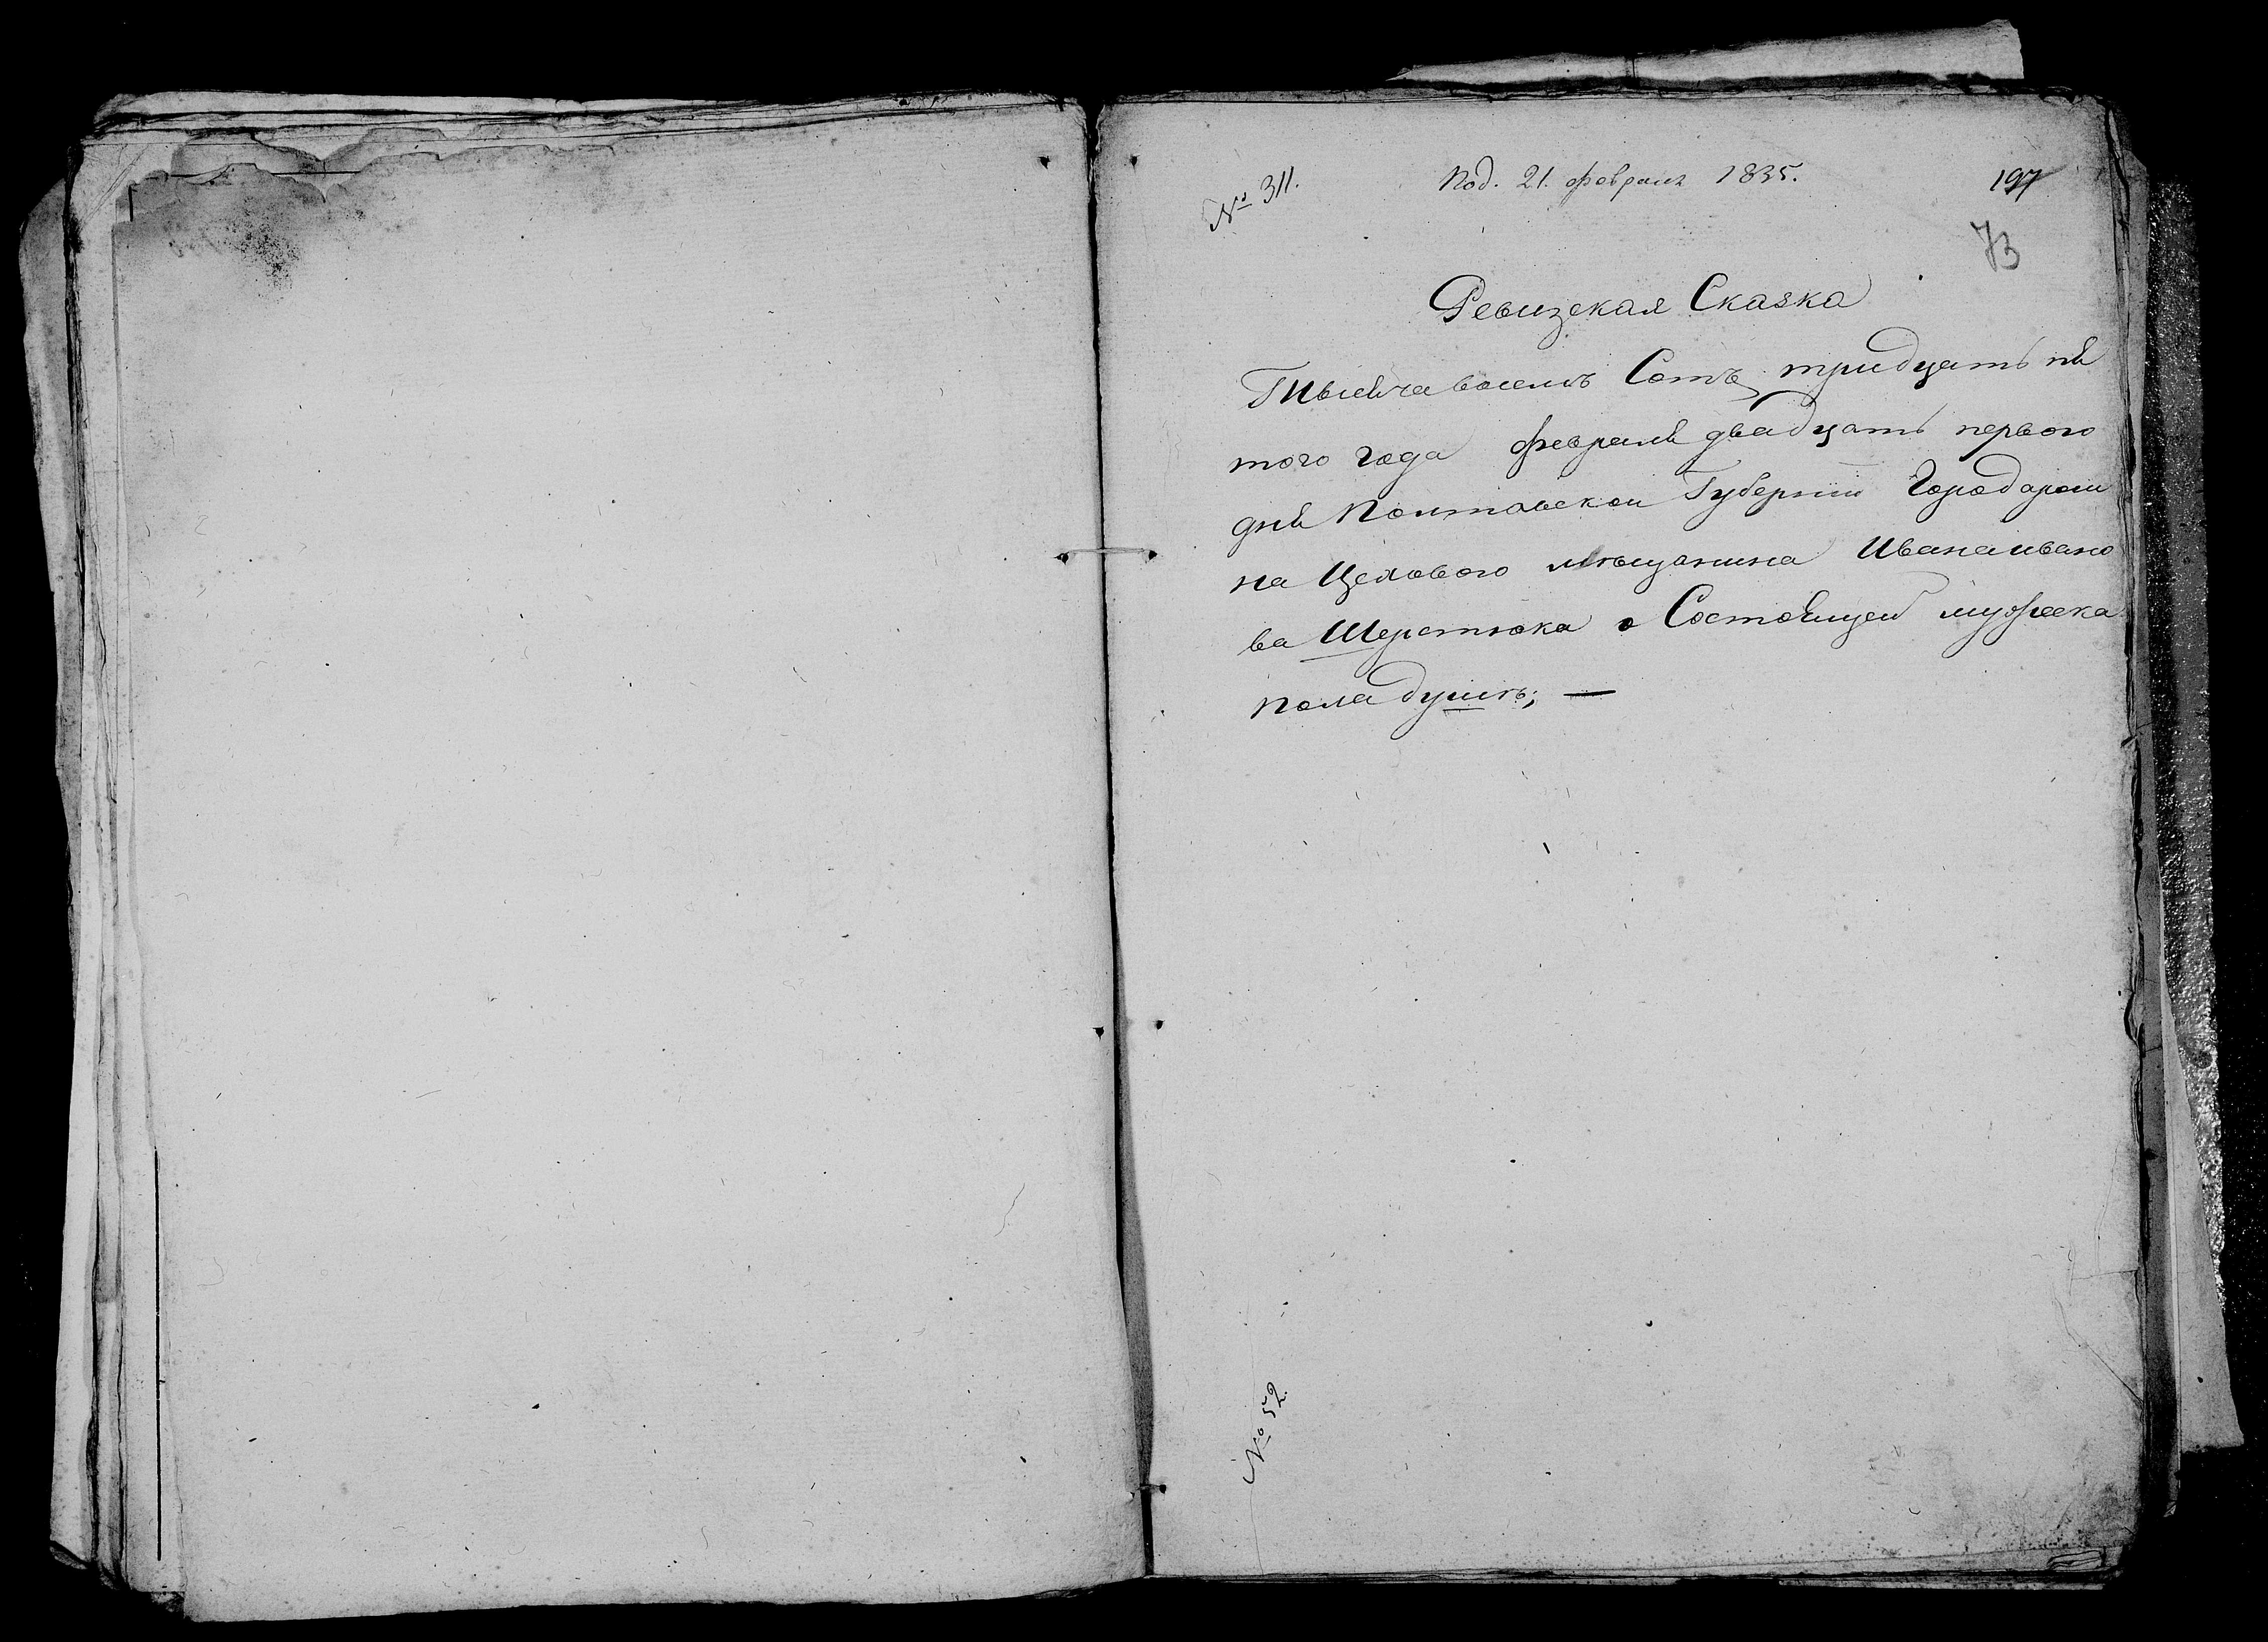 № 311.
Под. 21. февраля 1835.
197
73
Ревизская Сказка
Тысяча восемь Сотъ тридцать пя
того года февраля двадцать первого
дня Полтавской Губерніи Города роме
на Цехового мѣщанина Ивана ивано
ва Шерстюка о Состоящей мужеска
пола душѣ; —
№ 52.